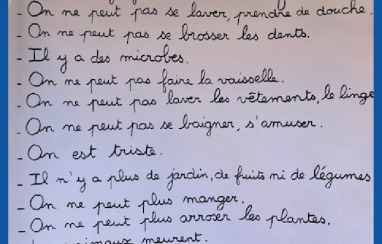 - On ne peut pas se laver, prendre de douche.
- On ne peut pas se brosser les dents.
- Il y a des microbes.
- On ne peut pas faire la vaisselle.
- On ne peut pas laver les vêtements, le linge
- On ne peut pas se baigner, s'amuser.
- On est triste.
- Il n'y a plus de jardin, de fruits ni de légumes
- On ne peut plus manger.
- On ne peut plus arroser les plantes.
meurent.